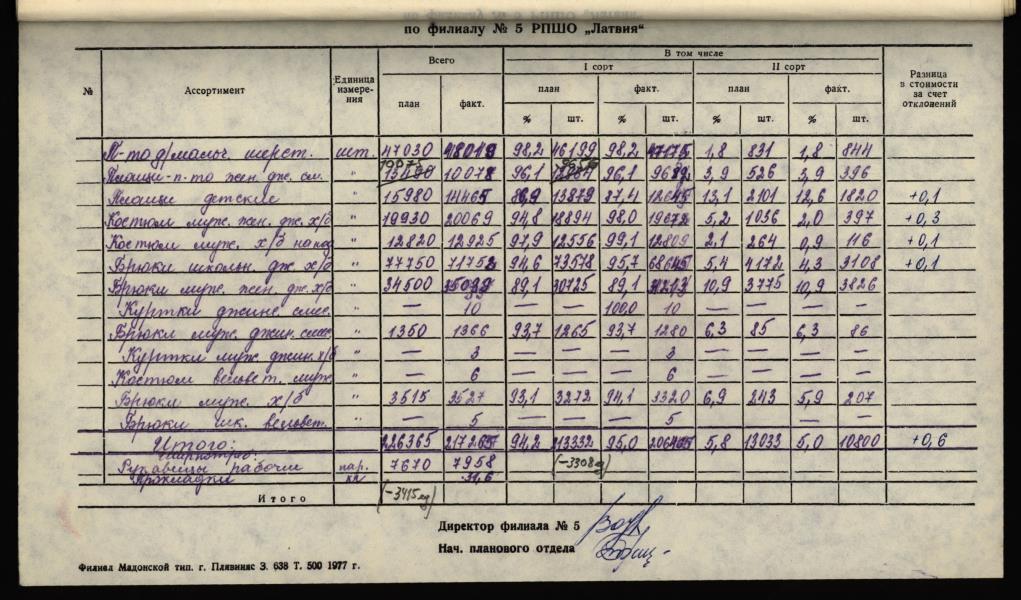 по филиалу № 5 РПШО „Латвия“
№ Ассортимент Единица измере- ния Всего В том числе Разница в стоимости за счет отклонений
I сорт II сорт
план факт. план факт. план факт.
% шт. % шт. % шт. % шт.
шт. 47030 48019 98,2 46199 98,2 47175 1,8 831 1,8 844
10075 9656
" 10078 96,1 96,1 3,9 526 3,9 396
детские " 15980 14465 86,9 13879 87,4 12645 13,1 2101 12,6 1820 +0,1
Костюм муж. жен. дж. х/б " 19930 20069 94,8 18894 98,0 19672 5,2 1036 2,0 397 +0,3
Костюм муж. х/б " 12820 12925 97,9 12556 99,1 12809 2,1 264 0,9 116 +0,1
Брюки школьн. дж. х/б " 77750 94,6 73578 95,7 68645 5,4 4172 4,3 3108 +0,1
Брюки муж. жен. дж. х/б " 34500 89,1 30725 89,1 10,9 3775 10,9 3826
Куртки джинс. смес. " — 10 — — 100,0 10 — — — —
Брюки муж. джин. смес. " 1350 1366 93,7 1265 93,7 1280 6,3 85 6,3 86
Куртки муж. джин. х/б " — 3 — — — 3 — — — —
Костюм вельвет. муж. " — 6 — — 6 — — — —
Брюки муж. х/б " 3515 3527 93,1 3272 94,1 3320 6,9 243 5,9 207
Брюки шк. вельвет. " — 5 — — 5 — — — —
Итого: 226365 217265 94,2 213332 95,0 206465 5,8 13033 5,0 10800 +0,6
Ширпотреб:
Рукавицы рабочии пар. 7670 7958 (-3308 ед)
Прокладки 31,6
Итого (-3415 ед)
Директор филиала № 5
Нач. планового отдела
Филиал Мадонской тип. г. Плявиняс З. 638 Т. 500 1977 г.